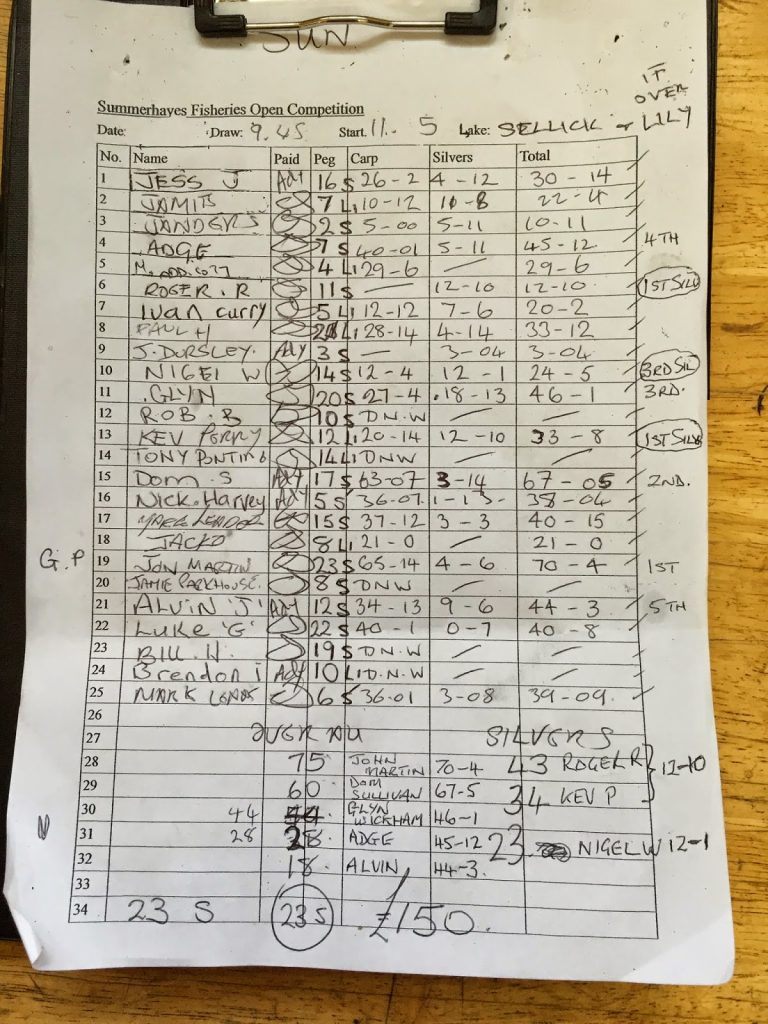 SUN
IT
OVER
Summerhayes Fisheries Open Competition
Date: Draw: 9.45 Start. 11. - 5 Lake: SELLICK + LILY
No. Name Paid Peg Carp Silvers Total
1 JESS J Ady 16 S 26-2 4-12 30-14
2 7 L 10-12 22-4
3 JANDERS 2 S 5-00 5-11 10-11
4 ADGE 7 S 40-01 5-11 45-12 4TH
5 4 L 29-6 — 29-6
6 ROGER. R 11 S — 12-10 12-10 1ST SILV
7 Ivan curry 5 L 12-12 7-6 20-2
8 PAUL H L 28-14 4-14 33-12
9 J. DURSLEY. Ady 3 S — 3-04 3-04
10 NIGEl W 14 S 12-4 12-1 24-5 3RD SIL
11 .GLYN 20 S 27-4 .18-13 46-1 3RD.
12 ROB. B 10 S DN.W — —
13 KEV PERRY 12 L 20-14 12-10 33-8 1ST SILV
14 TONY PONTING 14 L DNW — —
15 Dom. S Ady 17 S 63-07 3-14 67-05 2ND.
16 Nick. Harvey Ady 5 S 36-07 1-13- 38-04
17 15 S 37-12 3-3 40-15
18 JACKO 8 L 21-0 — 21-0
G.P 19 JON MARTIN 23 S 65-14 4-6 70-4 1ST
20 JAMIE PARKHOUSE. 8 S DNW — —
21 ALVIN 'J' Ady 12 S 34-13 9-6 44-3 5TH
22 LUKE 'G' 22 S 40-1 0-7 40-8
23 BILL. H. 19 S DN.W — —
24 Brendon i Ady 10 L D.N.W — —
25 MARK 6 S 36-01 3-08 39-09.
26
27 OVER ALL SILVERS
28 75 JOHN MARTIN 70-4 43 ROGER R } 12-10
29 60 DOM SULLIVAN 67-5 34 KEV P
30 44 44 GLYN WICKHAM 46-1
N 31 28 28 ADGE 45-12 23 NIGEL W 12-1
32 18 ALVIN 44-3.
33
34 23 S 23 S £150.